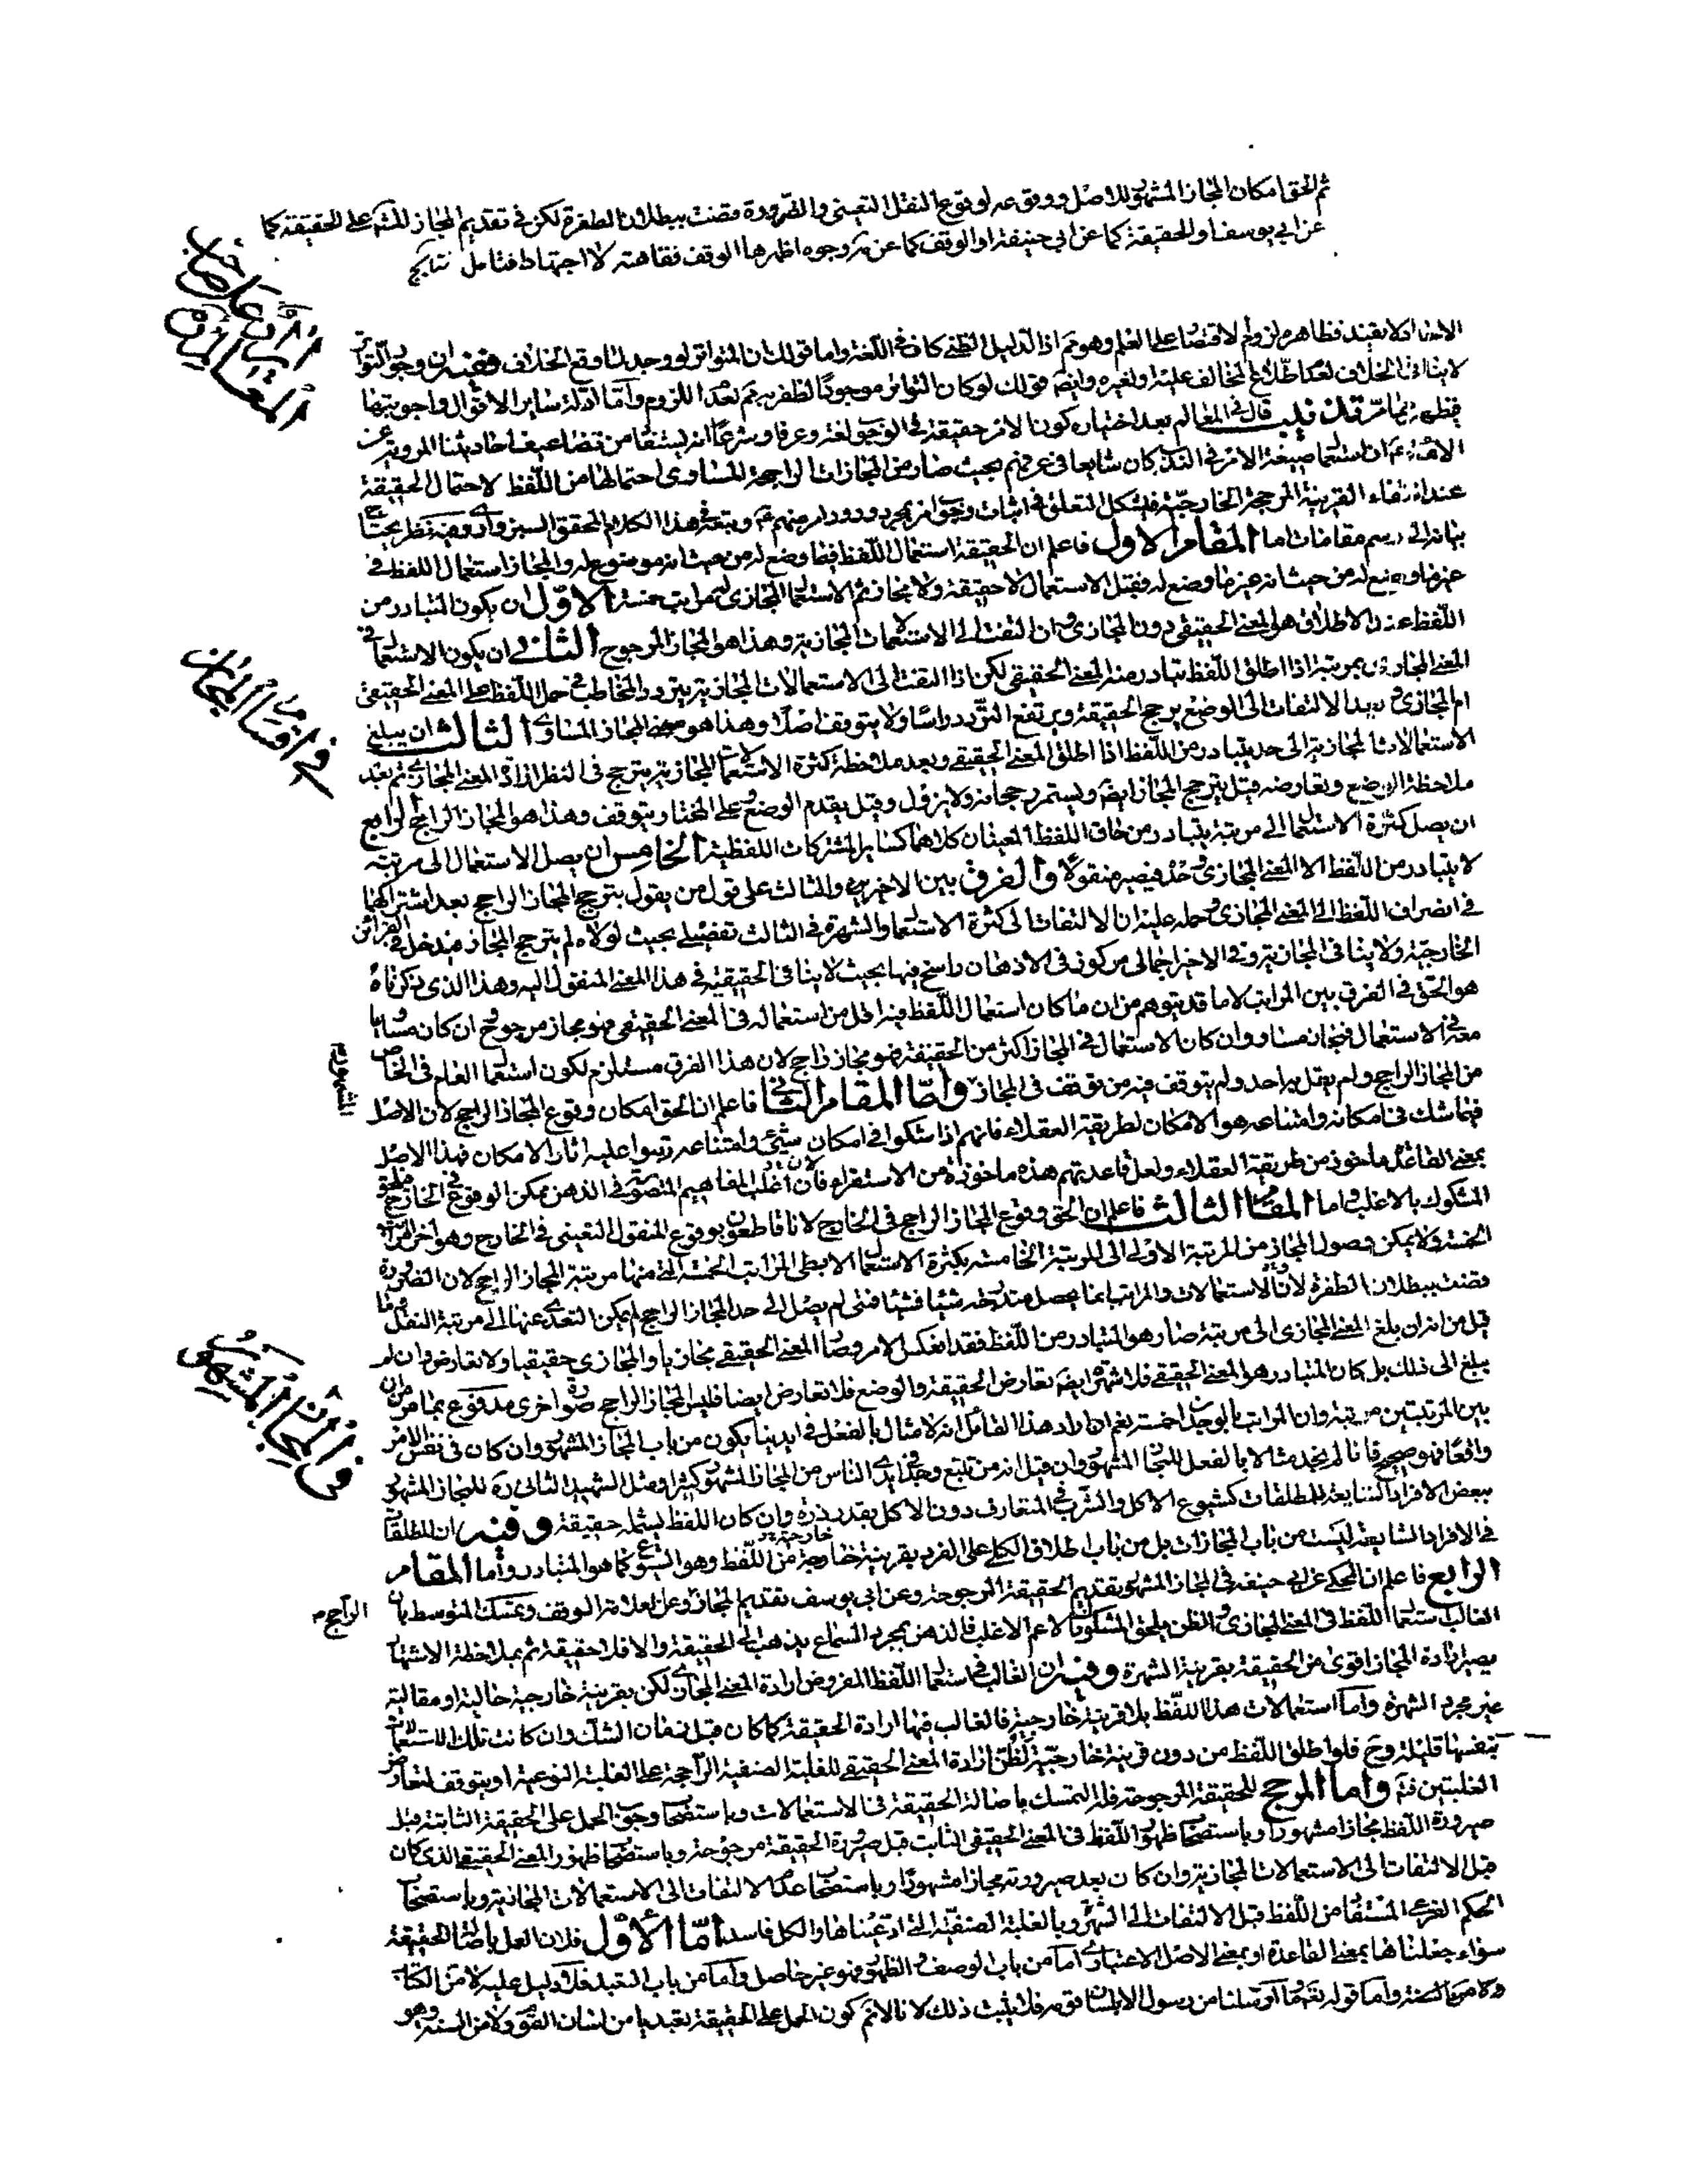 ثم الحق امكان المجاز المشهور للاصل ووقوعه لوقوع النقل التعينى والضرورة قضت ببطلان الطفرة لكن فى تقديم المجاز المشهور على الحقيقة كما
عن ابى يوسف او الحقيقة كما عن ابى حنيفة او الوقف كما عن وجوه اظهرها الوقف فقاهة لا اجتهادا فتامل نتايج
فظاهر لزوم الاقتصار على العلم وهو مم اذ الدليل الظنى كاف فى اللغة واما قولك ان المتواتر لو وجد لما وقع الخلاف ففيه ان وجود التواتر
لا ينافى الخلاف لعدم اطلاع المخالف عليه او لغيره وايضا قولك لو كان التواتر موجودا لظفر به مم لعدم اللزوم واما ادلة ساير الاقوال واجوبتها
فيظهر مما مر قد نيب قال فى المعالم بعد اختيار كون الامر حقيقة فى الوجوب لغة وعرفا وشرعا انه يستفاد من تضاعيف احاديثنا المروية عن
الائمة ع ان استعمال صيغة الامر فى الندب كان شايعا فى عرفهم بحيث صار من المجازات الراجحة المساوى احتمالها من اللفظ لاحتمال الحقيقة
عند انتفاء القرينة المرجحة الخارجية فيشكل التعلق فى اثبات وجوب امر بمجرد ورود امر منهم ع وتبعه فى هذا الكلام المحقق السبزوارى وفيه نظر يحتاج
بيانه الى رسم مقامات اما المقام الاول فاعلم ان الحقيقة استعمال اللفظ فيما وضع له من حيث انه موضوع له والمجاز استعمال اللفظ فى
غير ما وضع له من حيث انه غير ما وضع له فقبل الاستعمال لا حقيقة ولا مجاز ثم الاستعمال المجازى له مراتب خمسة الاول ان يكون المتبادر من
اللفظ عند الاطلاق هو المعنى الحقيقى دون المجازى وان التفت الى الاستعمالات المجازية وهذا هو المجاز المرجوح الثانى ان يكون الاستعمال فى
المعنى المجازى بمرتبة اذا اطلق اللفظ تبادر منه المعنى الحقيقى لكن اذا التفت الى الاستعمالات المجازية يتردد المخاطب فى حمل اللفظ على المعنى الحقيقى
ام المجازى وبعد الالتفات الى الوضع يرجح الحقيقة ويرتفع التردد راسا ولا يتوقف اصلا وهذا هو المجاز المساوى الثالث ان يبلغ
الاستعمالات المجازية الى حد يتبادر من اللفظ اذا اطلق المعنى الحقيقى وبعد ملاحظة كثرة الاستعمالات المجازية يترجح فى النظر ارادة المعنى المجازى ثم بعد
ملاحظة الوضع وتعارضه قيل يترجح المجاز ايضا ويستمر رجحانه ولا يزول وقيل يقدم الوضع وعلى المختار يتوقف وهذا هو المجاز الراجح الرابع
ان يصل كثرة الاستعمال الى مرتبة يتبادر من حاق اللفظ المعنيان كلاهما كساير المشتركات اللفظية الخامس ان يصل الاستعمال الى مرتبة
لا يتبادر من اللفظ الا المعنى المجازى وحده فيصير منقولا والفرق بين الاخير والثالث على قول من يقول بترجح المجاز الراجح بعد اشتراكهما
فى انصراف اللفظ الى المعنى المجازى وحمله عليه ان الالتفات الى كثرة الاستعمال والشهرة فى الثالث تفصيلى بحيث لولاه لم يترجح المجاز فيدخل فى القرائن
الخارجية ولا ينافى المجازية وفى الاخير اجمالى مركوز فى الاذهان راسخ فيها بحيث لا ينافى الحقيقية فى هذا المعنى المنقول اليه وهذا الذى ذكرناه
هو الحق فى الفرق بين المراتب لا ما قد يتوهم من ان ما كان استعمال اللفظ فيه اقل من استعماله فى المعنى الحقيقى فهو مجاز مرجوح وان كان مساويا
معه فى الاستعمال فمجاز مساو وان كان الاستعمال فى المجاز اكثر من الحقيقة فهو مجاز راجح لان هذا الفرق مستلزم لكون استعمال العام فى الخاص
من المجاز الراجح ولم يقل به احد ولم يتوقف فيه من توقف فى المجاز واما المقام الثانى فاعلم ان الحق امكان وقوع المجاز الراجح لان الاصل
فيما شك فى امكانه وامتناعه هو الامكان لطريقة العقلاء فانهم اذا شكوا فى امكان شىء وامتناعه رتبوا عليه اثار الامكان فهذا الاصل
بمعنى القاعدة ماخوذ من طريقة العقلاء ولعل قاعدتهم هذه ماخوذة من الاستقراء فان اغلب المفاهيم المتصورة فى الذهن ممكن الوقوع فى الخارج فيلحق
المشكوك بالاغلب واما المقام الثالث فاعلم ان الحق وقوع المجاز الراجح فى الخارج لانا قاطعون بوقوع المنقول التعينى فى الخارج وهو اخر المراتب
الخمسة ولا يمكن وصول المجاز من المرتبة الاولى الى المرتبة الخامسة بكثرة الاستعمال الا بطى المراتب الخمسة التى منها مرتبة المجاز الراجح لان الضرورة
قضت ببطلان الطفرة لان الاستعمالات والمراتب انما يحصل متدرجة شيئا فشيئا فمتى لم يصل الى حد المجاز الراجح لم يمكن التعدى عنها الى مرتبة النقل وما
قيل من انه ان بلغ المعنى المجازى الى مرتبة صار هو المتبادر من اللفظ فقد انعكس الامر وصار المعنى الحقيقى مجازيا والمجازى حقيقيا ولا تعارض وان لم
يبلغ الى ذلك بل كان المتبادر هو المعنى الحقيقى فلا شهرة ايضا تعارض الحقيقة والوضع فلا تعارض ايضا فليس للمجاز الراجح صورة اخرى مدفوع بما مر من ان
بين المرتبتين مرتبة وان المراتب بالوجدان خمسة نعم ان اراد هذا القائل انه لا مثال بالفعل فى ايدينا يكون من باب المجاز المشهور وان كان فى نفس الامر
واقعا فهو صحيح فانا لم نجد مثالا بالفعل للمجاز المشهور وان قيل انه من تتبع وجد فى ايدى الناس من المجاز المشهور كثيرا ومثل الشهيد الثانى ره للمجاز المشهور
ببعض الافراد الشايعة للمطلقات كشيوع الاكل والشرب فى المتعارف دون الاكل بقدر ذرة وان كان اللفظ يشمله حقيقة وفيه ان المطلقات
فى الافراد الشايعة ليست من باب المجازات بل من باب اطلاق الكلى على الفرد بقرينة خارجة من اللفظ وهو الشيوع كما هو المتبادر واما المقام
الرابع فاعلم ان المحكى عن ابى حنيفة فى المجاز المشهور تقديم الحقيقة المرجوحة وعن ابى يوسف تقديم المجاز وعن العلامة الوقف وتمسك المتوسط بان
الغالب استعمال اللفظ فى المعنى المجازى والظن يلحق المشكوك بالاعم الاغلب فالذهن بمجرد السماع يذهب الى الحقيقة والا فلا حقيقة ثم بملاحظة الاشتهار
يصير ارادة المجاز اقوى من الحقيقة بقرينة الشهرة وفيه ان الغالب فى استعمال اللفظ المفروض ارادة المعنى المجازى لكن بقرينة خارجية حالية او مقالية
غير مجرد الشهرة واما استعمالات هذا اللفظ بلا قرينة خارجية فالغالب فيها ارادة الحقيقة كما كان قبل زمان الشك وان كانت تلك الاستعمالات
بنفسها قليلة وح فلو اطلق اللفظ من دون قرينة خارجية لظن ارادة المعنى الحقيقى للغلبة الصنفية الراجحة على الغلبة النوعية او يتوقف لتعارض
الغلبتين فتم واما المرجح للحقيقة المرجوحة فله التمسك باصالة الحقيقة فى الاستعمالات وباستصحاب وجوب الحمل على الحقيقة الثابتة قبل
صيرورة اللفظ مجازا مشهورا وباستصحاب ظهور اللفظ فى المعنى الحقيقى الثابت قبل صيرورة الحقيقة مرجوحة وباستصحاب ظهور المعنى الحقيقى الذى كان
قبل الالتفات الى الاستعمالات المجازية وان كان بعد صيرورته مجازا مشهورا وباستصحاب عدم الالتفات الى الاستعمالات المجازية وباستصحاب
الحكم الفرعى المستفاد من اللفظ قبل الالتفات الى الشهرة وبالغلبة الصنفية التى ادعيناها والكل فاسد اما الاول فلان العمل باصالة الحقيقة
سواء جعلناها بمعنى القاعدة او بمعنى الاصل الاعتبارى اما من باب الوصف والظهور فهو غير حاصل واما من باب التعبد فلا دليل عليه لا من الكتاب
ولا من السنة واما قوله تعالى وما ارسلنا من رسول الا بلسان قومه فلا يثبت ذلك لانا لا نم كون الحمل على الحقيقة تعبديا من لسان القوم ولا من السنة وهو
فى اقسام المجاز
فى المجاز المشهور
المشهور م
الراجح م